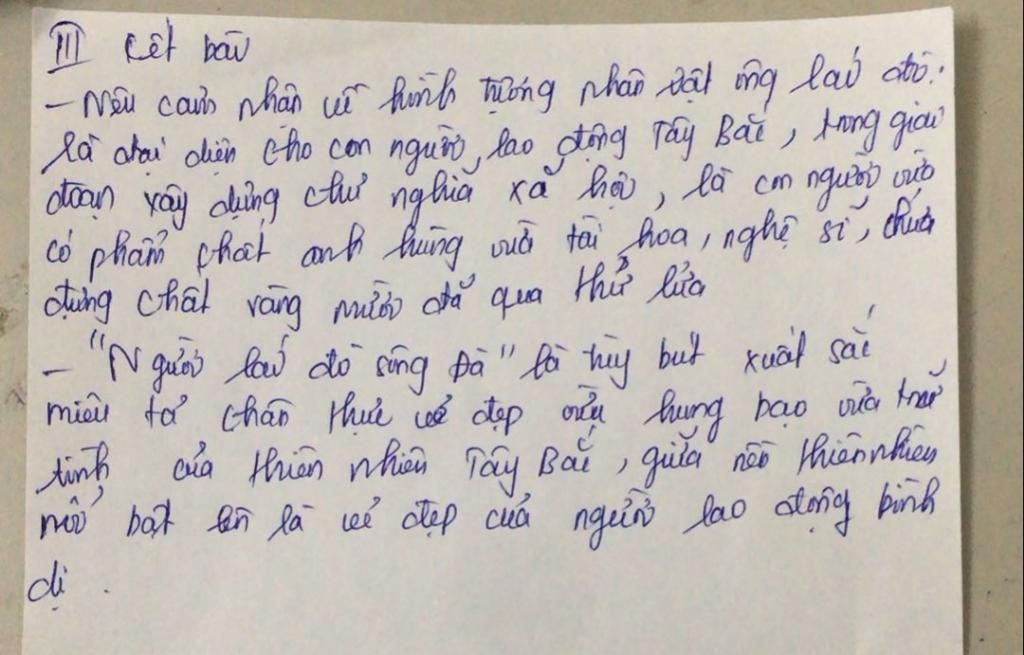 III Kết bài
- Nêu cảm nhận về hình tượng nhân vật ông lái đò:
là đại diện cho con người lao động Tây Bắc, trong giai
đoạn xây dựng chủ nghĩa xã hội, là con người vừa
có phẩm chất anh hùng vừa tài hoa, nghệ sĩ, chứa
đựng chất vàng mười đã qua thử lửa
- "Người lái đò sông Đà" là tùy bút xuất sắc
miêu tả chân thực vẻ đẹp vừa hung bạo vừa trữ
tình của thiên nhiên Tây Bắc, giữa nền thiên nhiên
nổi bật lên là vẻ đẹp của người lao động bình
dị.